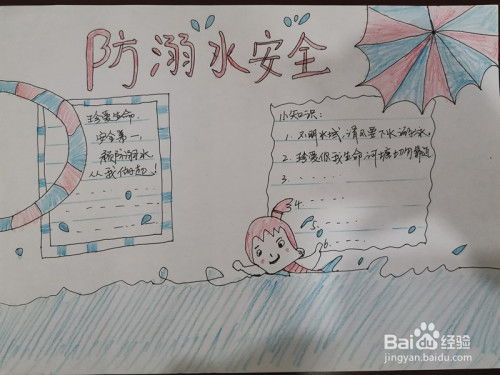 防溺水安全
珍爱生命,
安全第一,
预防溺水
从我做起!
小知识:
1. 不明水域,请勿要下水游泳.
2. 珍爱你我生命,河塘切勿靠近
3.
4.
5.
6.
Baidu经验
jingyan.baidu.com